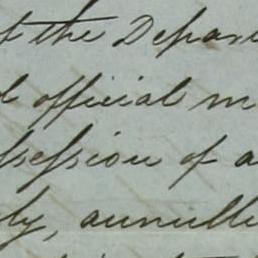 of the Depar
d official m
ssession of a
ly, annulle